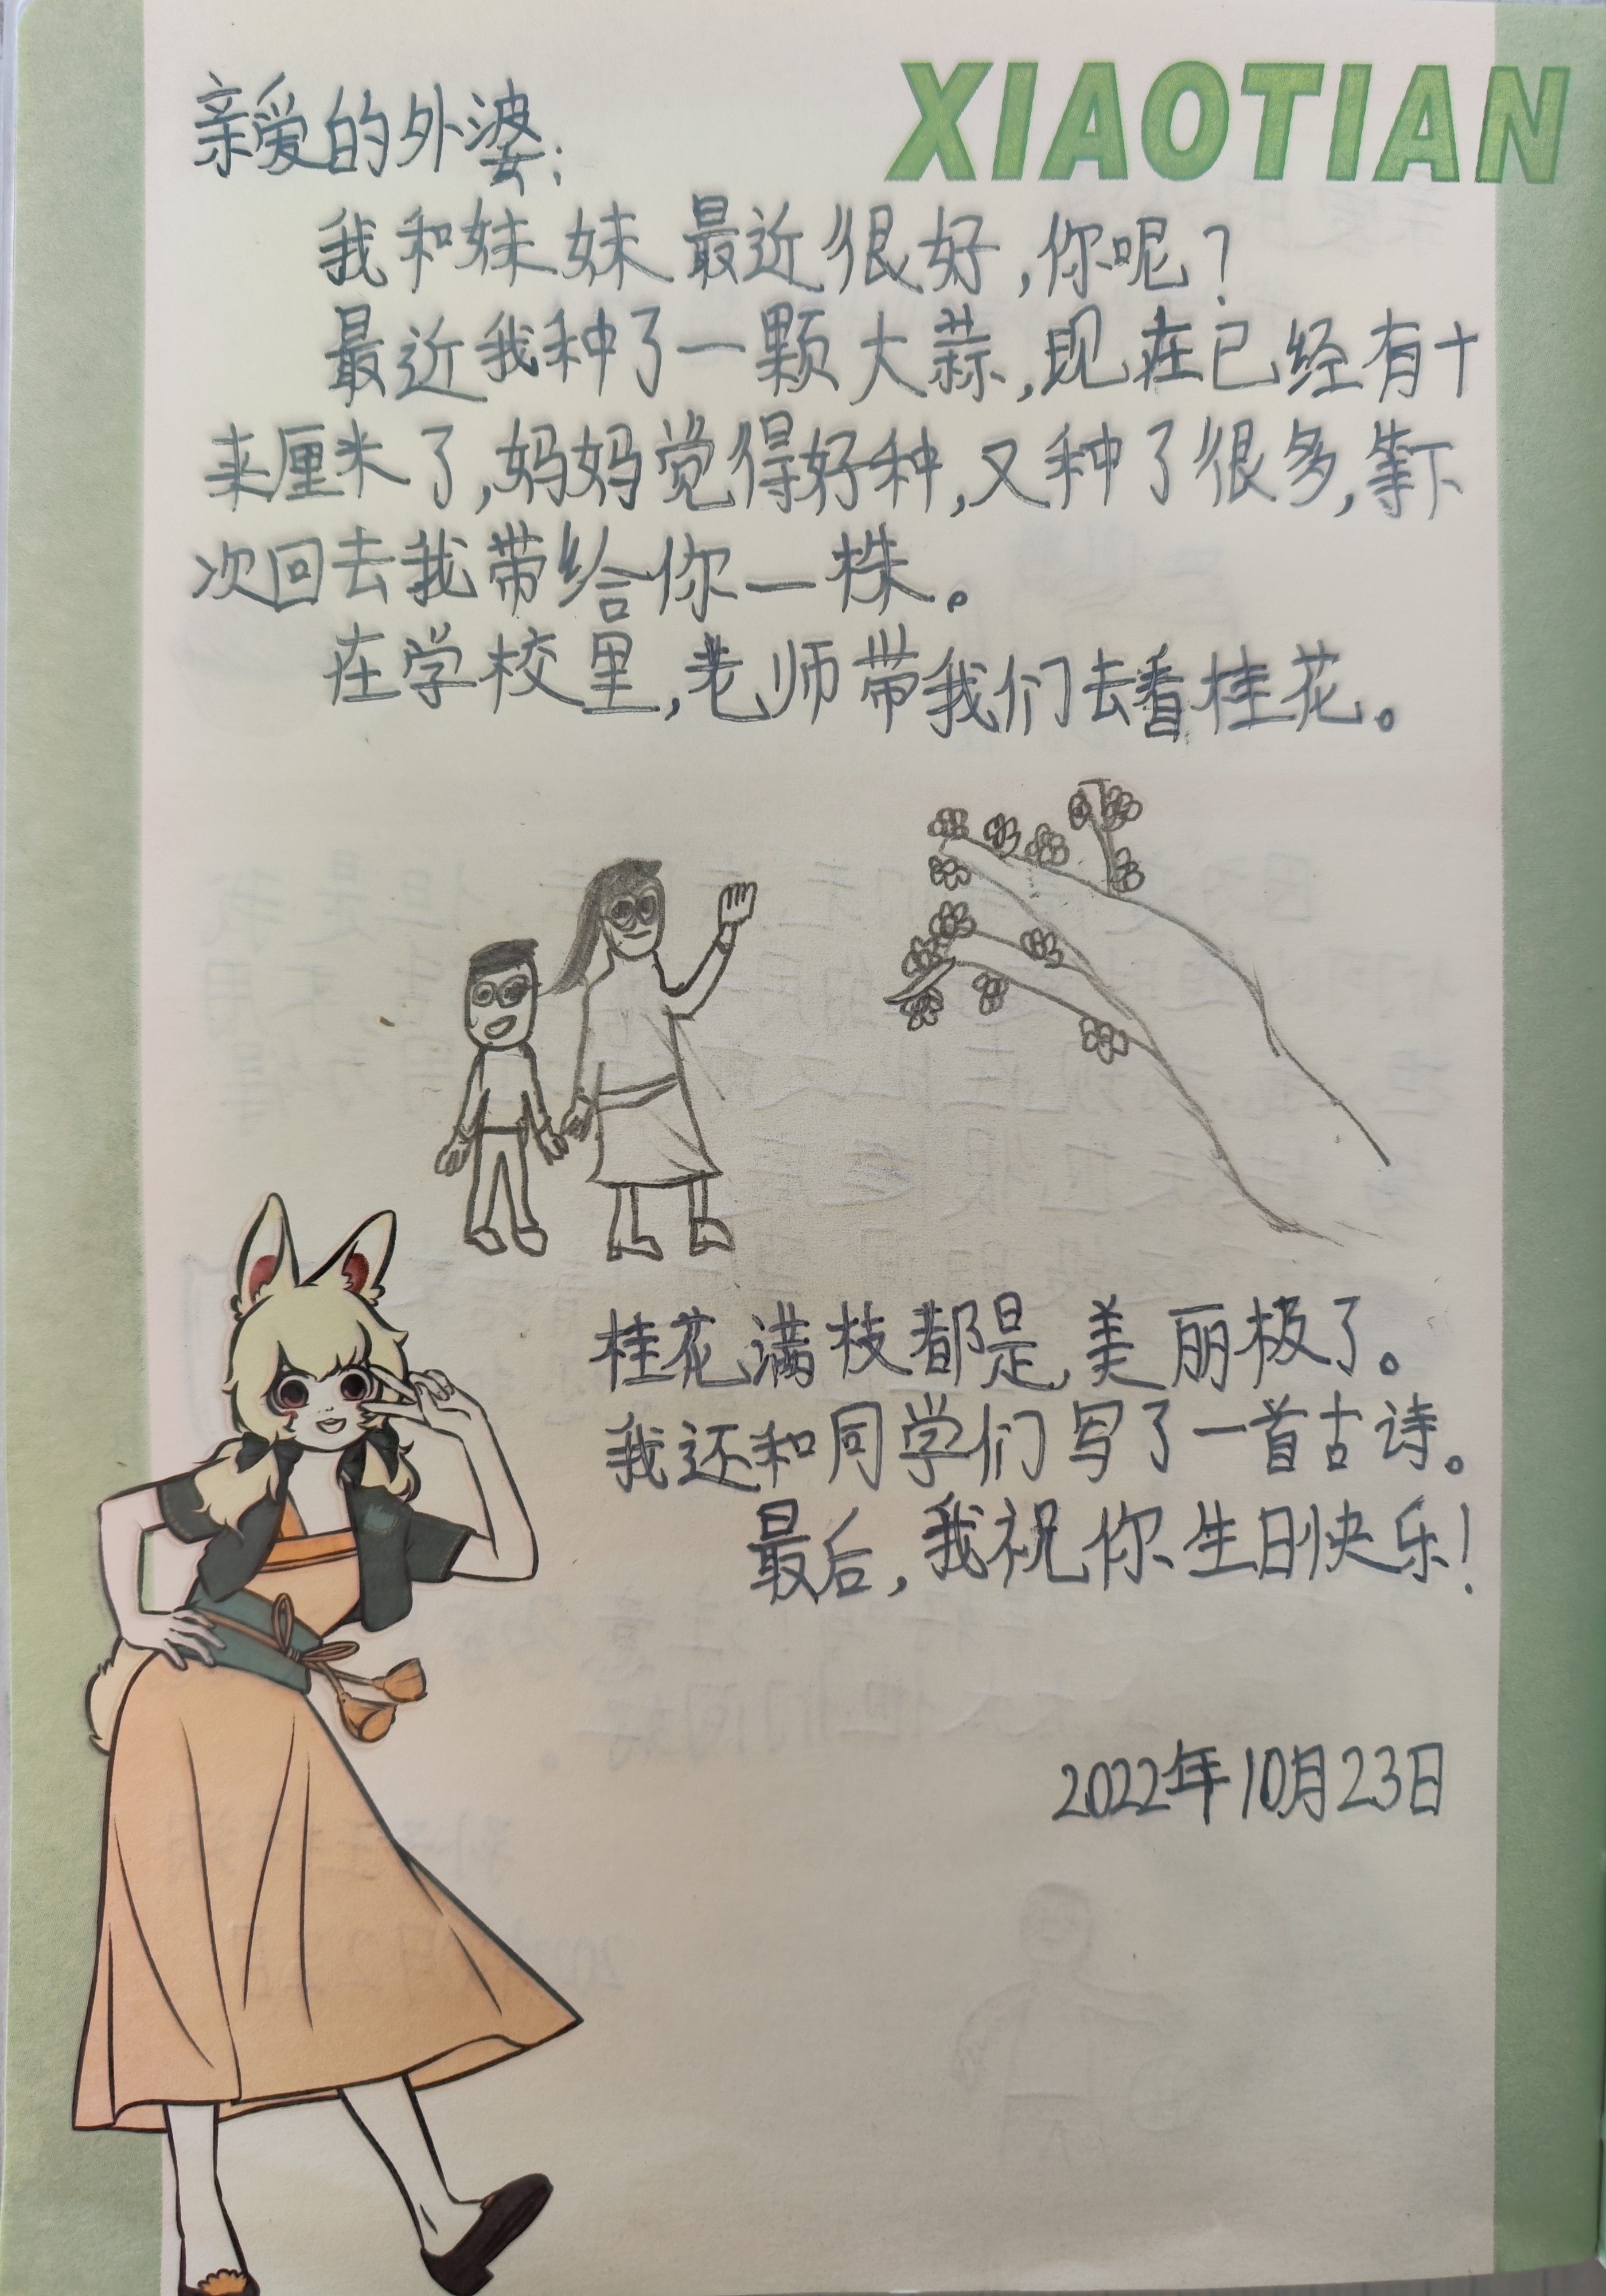 XIAOTIAN
亲爱的外婆:
我和妹妹最近很好,你呢?
最近我种了一颗大蒜,现在已经有十
来厘米了,妈妈觉得好种,又种了很多,等下
次回去我带给你一株。
在学校里,老师带我们去看桂花。
桂花满枝都是,美丽极了。
我还和同学们写了一首古诗。
最后,我祝你生日快乐!
2022年10月23日